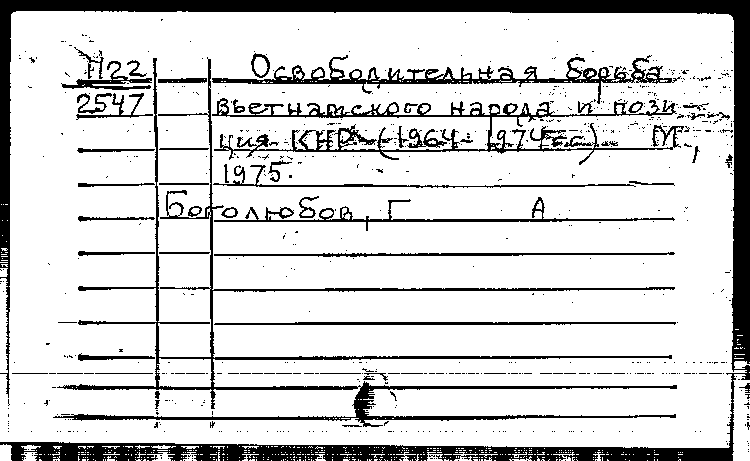 П22 Освободительная борьба
2547 вьетнамского народа и пози-
ция КНР (1964-1974гг). М.,
1975.
Боголюбов, Г А